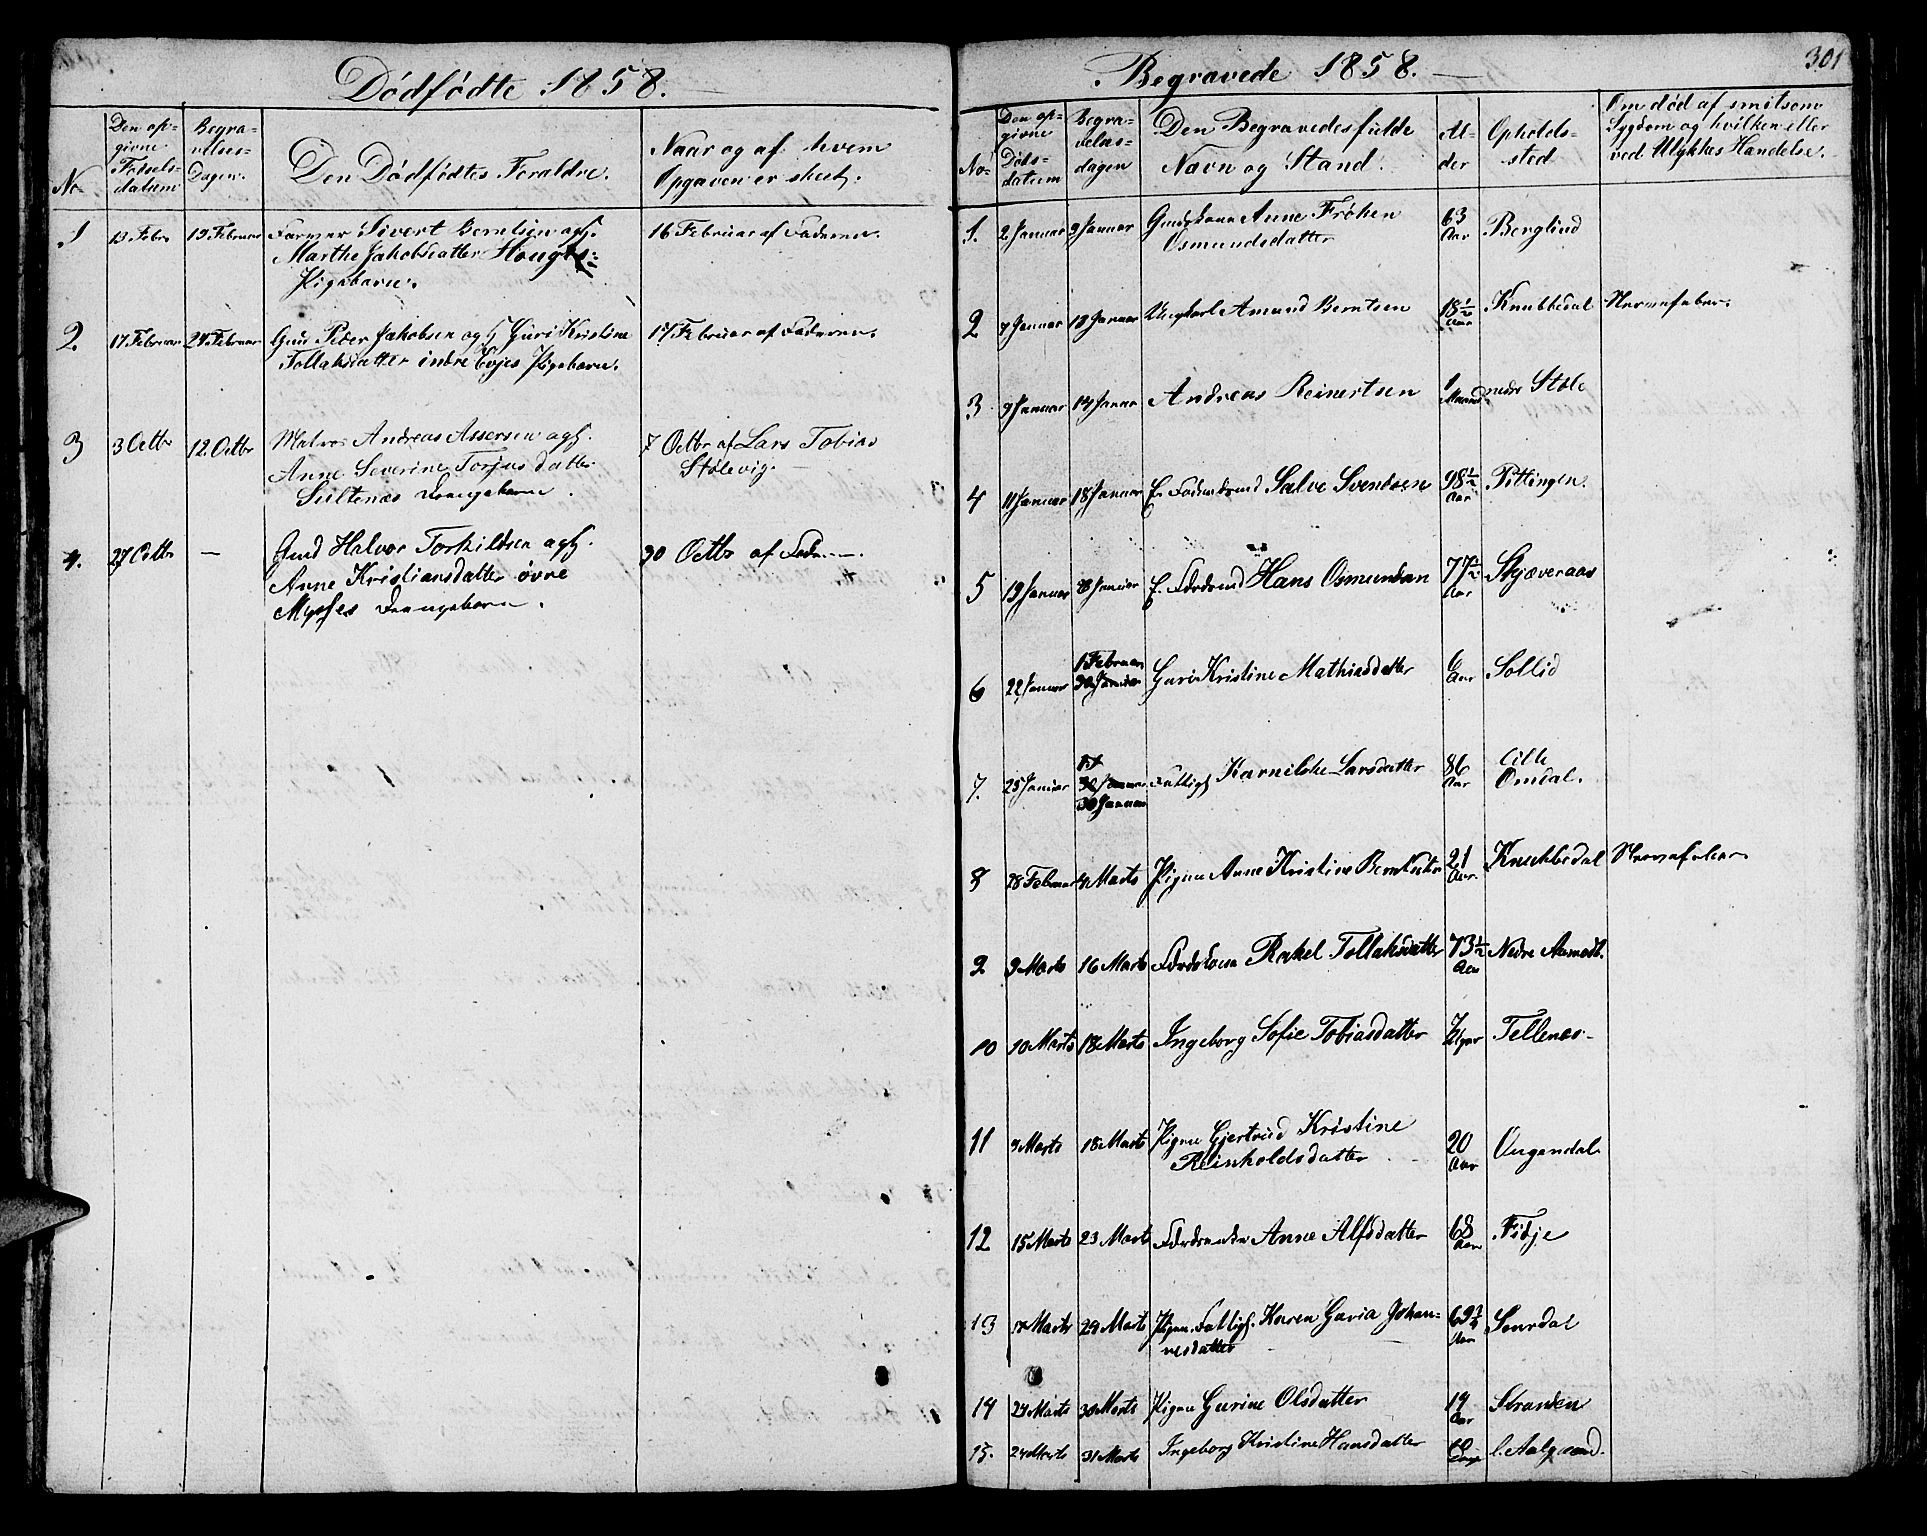 Dødfødte 1858.
No
Den op-
givne
Fødsels-
datum
Begra-
velses-
Dagen.
Den Dødfødtes Foraldre.
Naar og af hvem
Opgaven er skeet.
1 13 Febr 19 Februar Sivert Berntsen og h.
16 Februar af Faderen.
Marthe Jakobsdatter
Pigebarn.
2. 17 Februar 24 Februar Gmd Peder Jakobsen og h Guri Kristine
17 Februar af Faderen.
Tollaksdatter indre Eyes Pigebarn.
3 3 Octbr 12 Octbr Matros Andreas Assersen og h.
7 Octbr af Lars Tobias
Anne Severine Torjusdatter
Stølevig.
Sultenæs Drengebarn.
4. 27 Octbr — Gmd Halvor Torkildsen og h.
30 Octbr af Faderen.
Anne Kristiansdatter øvre
Drengebarn.
Begravede 1858.
301
No
Den op-
givne
Døds-
datum
Begra-
velses-
dagen
Den Begravedes fulde
Navn og Stand.
Al-
der
Opholds-
sted
Om død af smitsom
Sygdom og hvilken eller
ved Ulykkes Handelse.
1. 2 Januar 9 Januar Anne Frøken 63 Berglind
Osmundsdatter Aar
2 7 Januar 13 Januar Ungkarl Amund Berntsen 18½ Knubbedal Nervefeber.
Aar
3 9 Januar 14 Januar Andreas Reinertsen 1 nedre Støle
Maaned
4 11 Januar 18 Januar Salve Svendsen 98½ Pittingen.
Aar
5 19 Januar 28 Januar Hans Osmundsen 77½ Skjæveraas
Aar
1 Februar
6 22 Januar 30 Januar Guri Kristine Mathiasdatter 6 Sollid
Aar
7. 25 Januar 30 Januar Fattigl Karnilske Larsdatter 86 Lille
30 Januar Aar Omdal.
8 28 Februar 4 Marts Pigen Anne Kristine 21 Knubbedal Nervefeber
Aar
9 9 Marts 16 Marts Rakel Tollaksdatter 73½ Nedre Aamodt.
Aar
10 10 Marts 18 Marts Ingeborg Sofie Tobiasdatter Tellenes
11 9 Marts 18 Marts Pigen Gjertrud Kristine 20 Ougendal
Reinholdsdatter Aar
12 15 Marts 23 Marts Anne Alfsdatter 68 Fidje
Aar
13 17 Marts 29 Marts Pigen Fattigl. Karen Guria Johan- 69¾ Suurdal
nesdatter Aar
14 24 Marts 30 Marts Pigen Gurine Olsdatter 19 Stranden
Aar
15. 24 Marts 31 Marts Ingeborg Kristine Hansdatter l. Aalgaard.
Dage